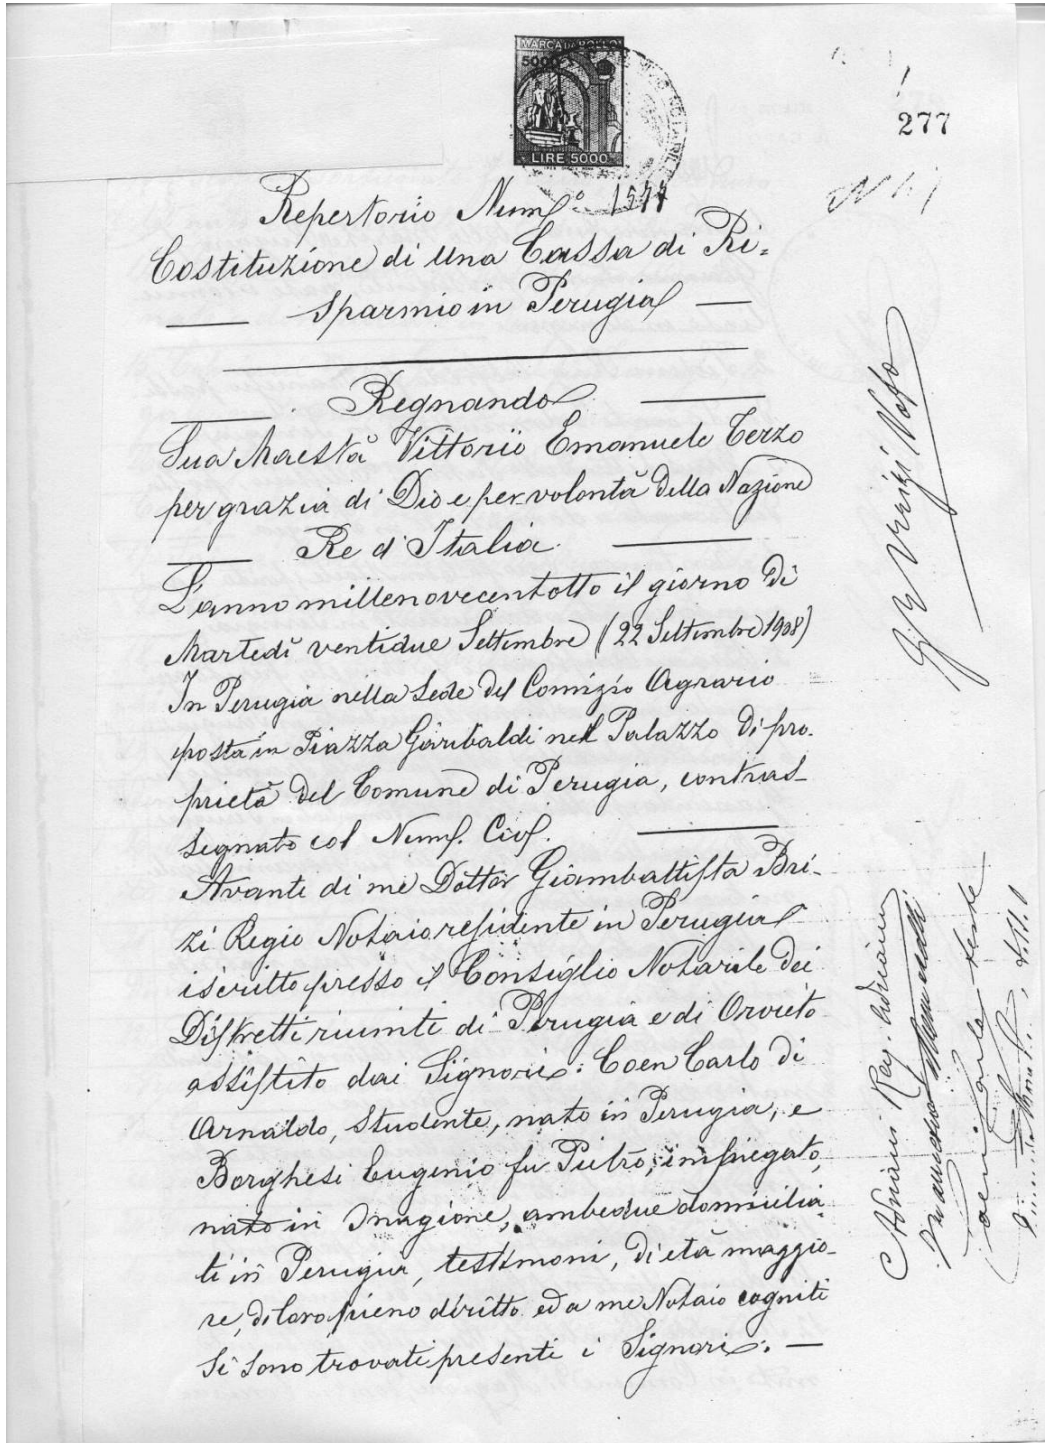 MARCA DA BOLLO
5000
LIRE 5000
277
Repertorio Num.º 1544
Costituzione di una Cassa di Ri=
sparmio in Perugia
Regnando
Sua Maestà Vittorio Emanuele Terzo
per grazia di Dio e per volontà della Nazione
Re d'Italia
L'anno millenovecentotto il giorno di
Martedì ventidue Settembre (22 Settembre 1908)
In Perugia nella sede del Comizio Agrario
posta in Piazza Garibaldi nel Palazzo di pro-
prietà del Comune di Perugia, contras-
segnato col Num. Civ.
Avanti di me Dottor Giambattista Bri-
zi Regio Notaio residente in Perugia
iscritto presso il Consiglio Notarile dei
Distretti riuniti di Perugia e di Orvieto
assistito dai Signori: Coen Carlo di
Arnaldo, studente, nato in Perugia, e
Borghesi Eugenio fu Pietro, impiegato,
nato in Magione, ambedue domicilia
ti in Perugia, testimoni, di età maggio-
re, di loro pieno diritto ed a me Notaio cogniti
si sono trovati presenti i Signori: —
Adriani Rag. Adriano